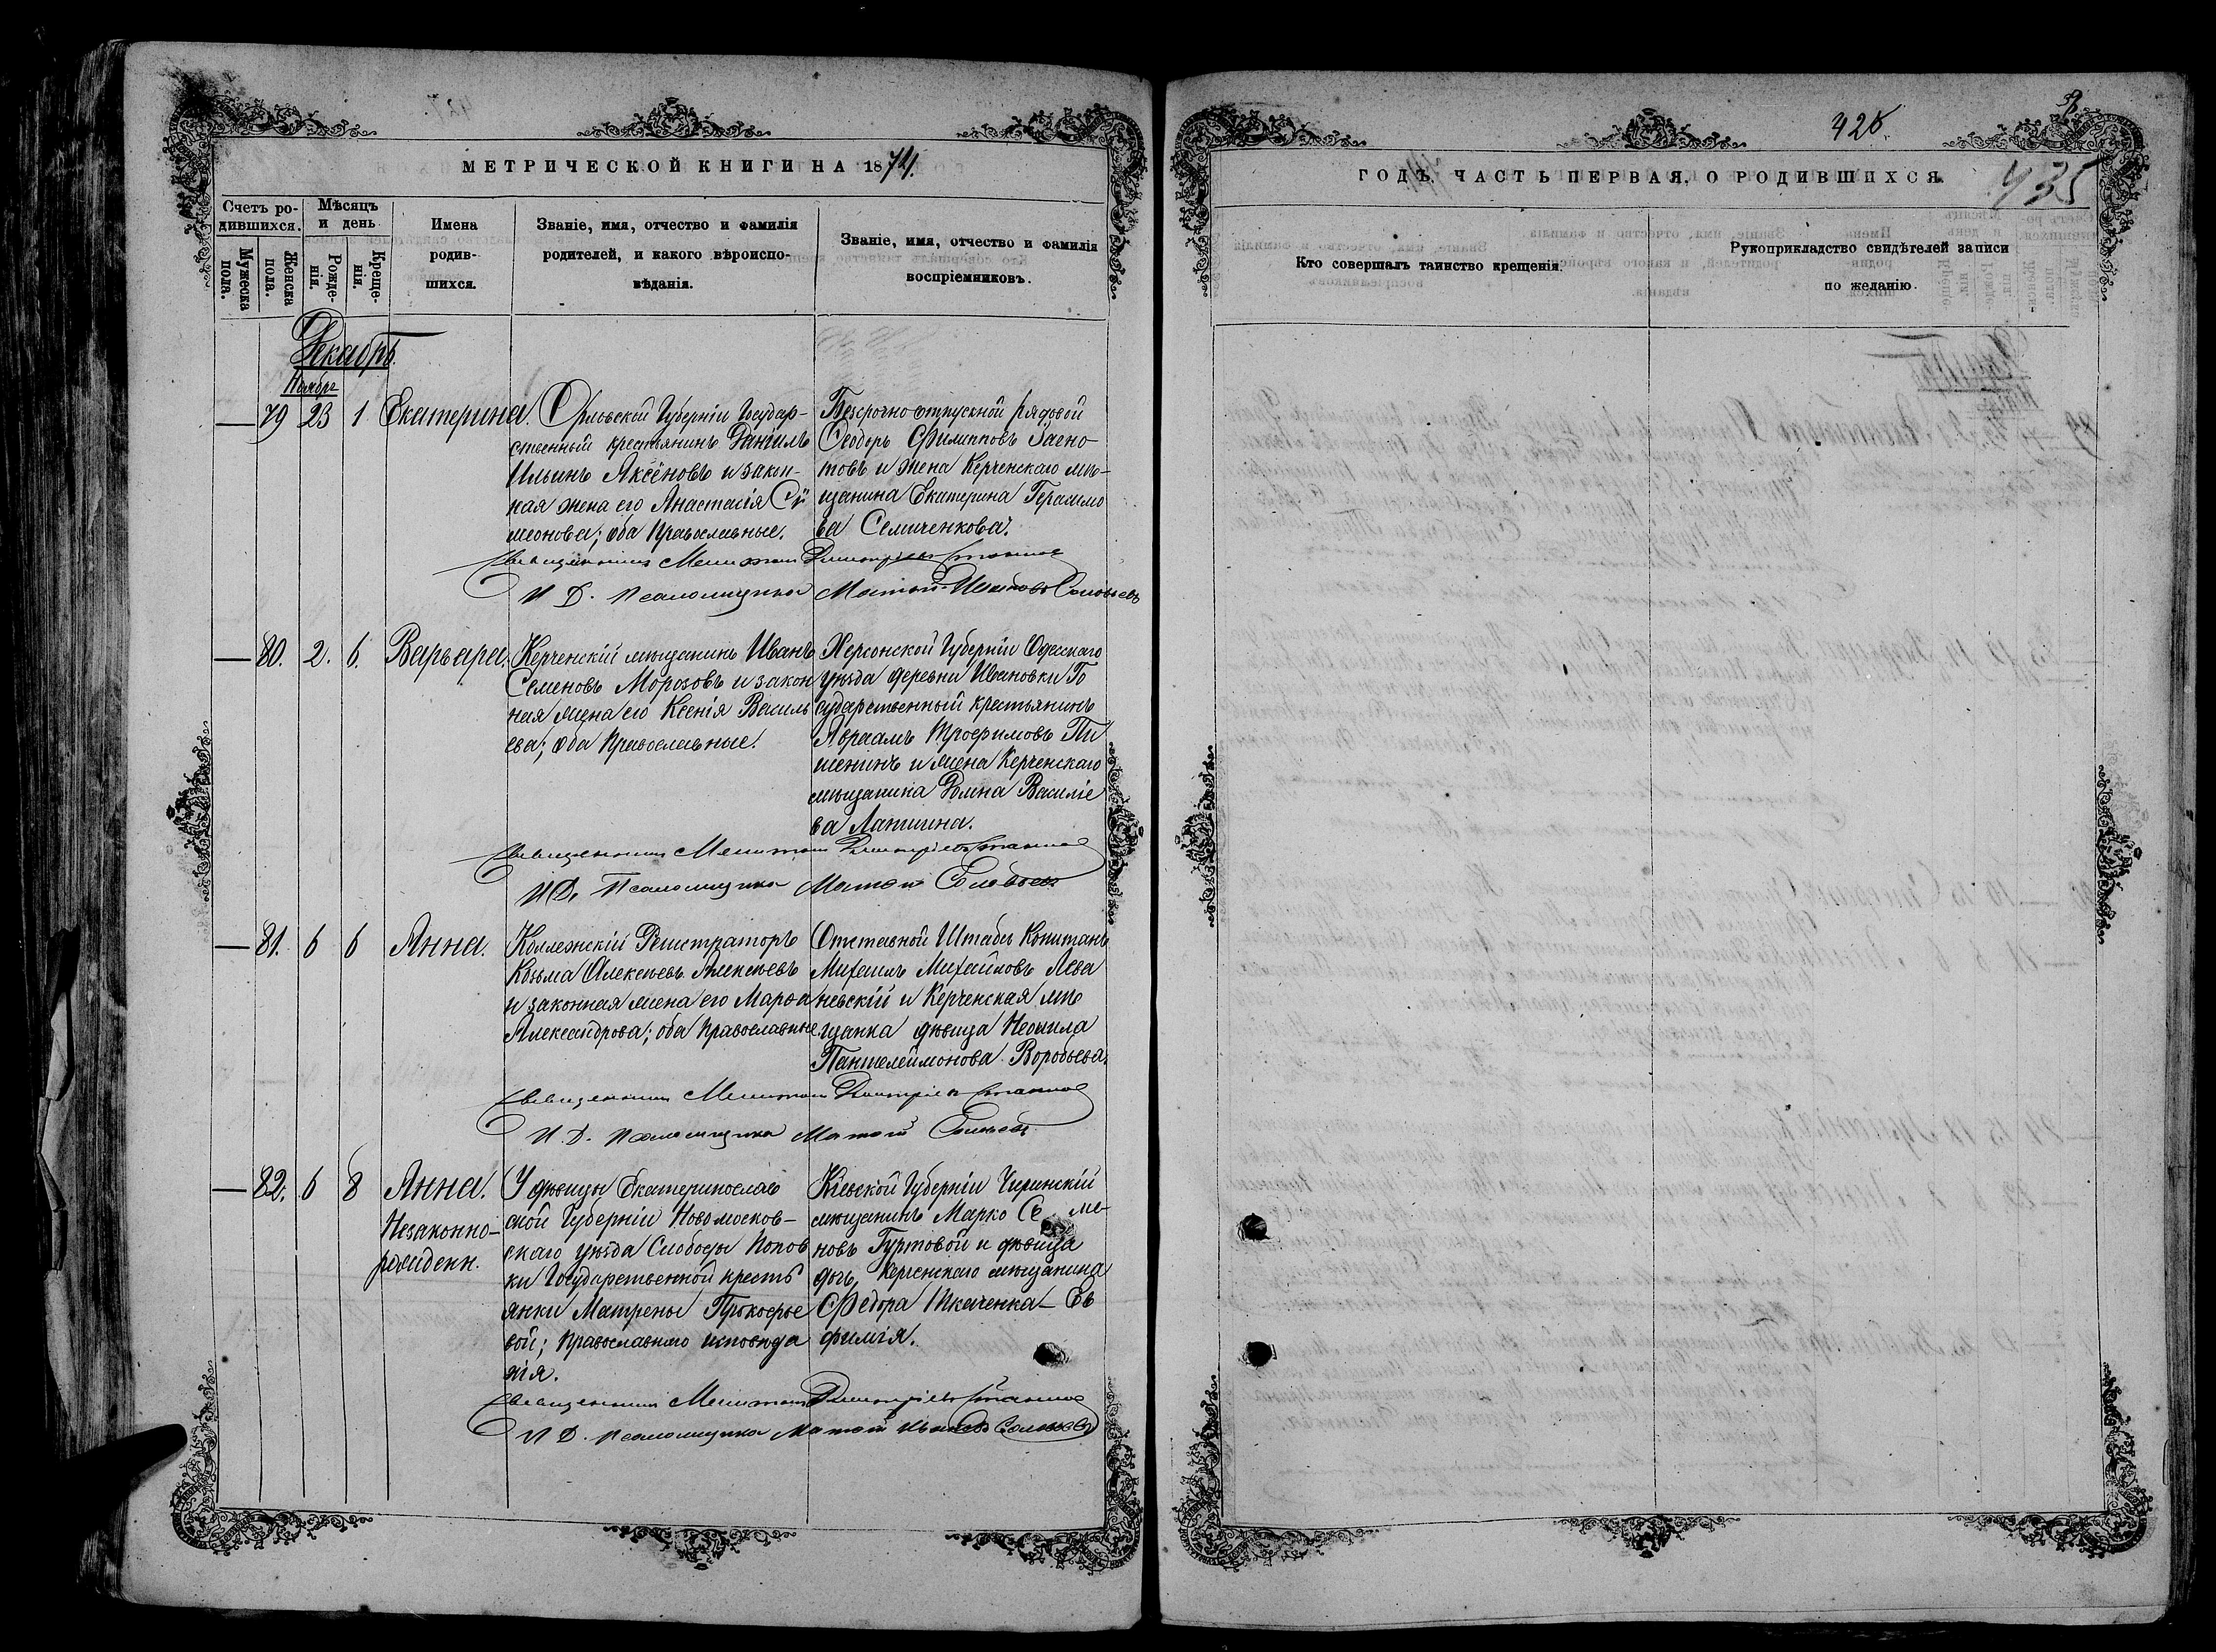 МЕТРИЧЕСКОЙ КНИГИ НА 1874.
Счетъ ро-
дившихся.
Мужеска
пола.
Женска
пола.
Мѣсяцъ
и день
Рожде-
нія.
Креще-
нія.
Имена
родив-
шихся.
Званіе, имя, отчество и фамилія
родителей, и какого вѣроиспо-
вѣданія.
Званіе, имя, отчество и фамилія
воспріемниковъ.
Декабрь.
Ноября
— 79 23 1 Екатерина.
Орловской Губерніи Государ-
ственный крестьянинъ Даніилъ
Ильинъ Аксёновъ и закон-
ная жена его Анастасія Си
меонова; оба Православные.
Безсрочно отпускной рядовой
Ѳеодоръ Филипповъ
товъ и жена Керченскаго мѣ-
щанина Екатерина Герасимо
ва Семиченкова.
Священникъ Мелитонъ Димитріевъ
И. Д. Псаломщика Матѳей Ивановъ Соловьевъ
— 80. 2. 6. Варвара.
Керченскій мѣщанинъ Иванъ
Семеновъ Морозовъ и закон
ная жена его Ксенія Василь
ева; оба Православные.
Херсонской Губерніи Одесскаго
уѣзда деревни Ивановки Го
сударственный крестьянинъ
Авраамъ Трофимовъ Пи
менинъ и жена Керченскаго
мѣщанина Домна Василіе
ва Лапшина.
Священникъ Мелитонъ Димитріевъ
И. Д. Псаломщика Матѳей Соловьевъ
— 81. 6 6 Анна.
Коллежскій Регистраторъ
Козьма Алексѣевъ Алексѣевъ
и законная жена его Марѳа
Александрова; оба Православные
Отставной Штабсъ Капитанъ
Михаилъ Михайловъ Лева
невскій и Керченская мѣ
щанка дѣвица Неонила
Пантелеймонова Воробьева.
Священникъ Мелитонъ Димитріевъ
И. Д. Псаломщика Матѳей Соловьевъ
— 82. 6 8 Анна.
Незаконно-
рожденн.
У дѣвицы Екатеринослав
ской Губерніи Новомосков-
скаго уѣзда Слободы Попов
ки Государственной кресть
янки Матрены Прокофье
вой; Православнаго исповѣда
нія.
Кіевской Губерніи Чигринскій
мѣщанинъ Марко Се ме-
новъ Гуртовой и дѣвица
дочь, Керченскаго мѣщанина
Федора Ткаченка - Ев
фимія.
Священникъ Мелитонъ Димитріевъ
И. Д. Псаломщика Матѳей Ивановъ Соловьевъ
428.
435
ГОДЪ, ЧАСТЬ ПЕРВАЯ, О РОДИВШИХСЯ.
Кто совершалъ таинство крещенія.
Рукоприкладство свидѣтелей записи
по желанію.